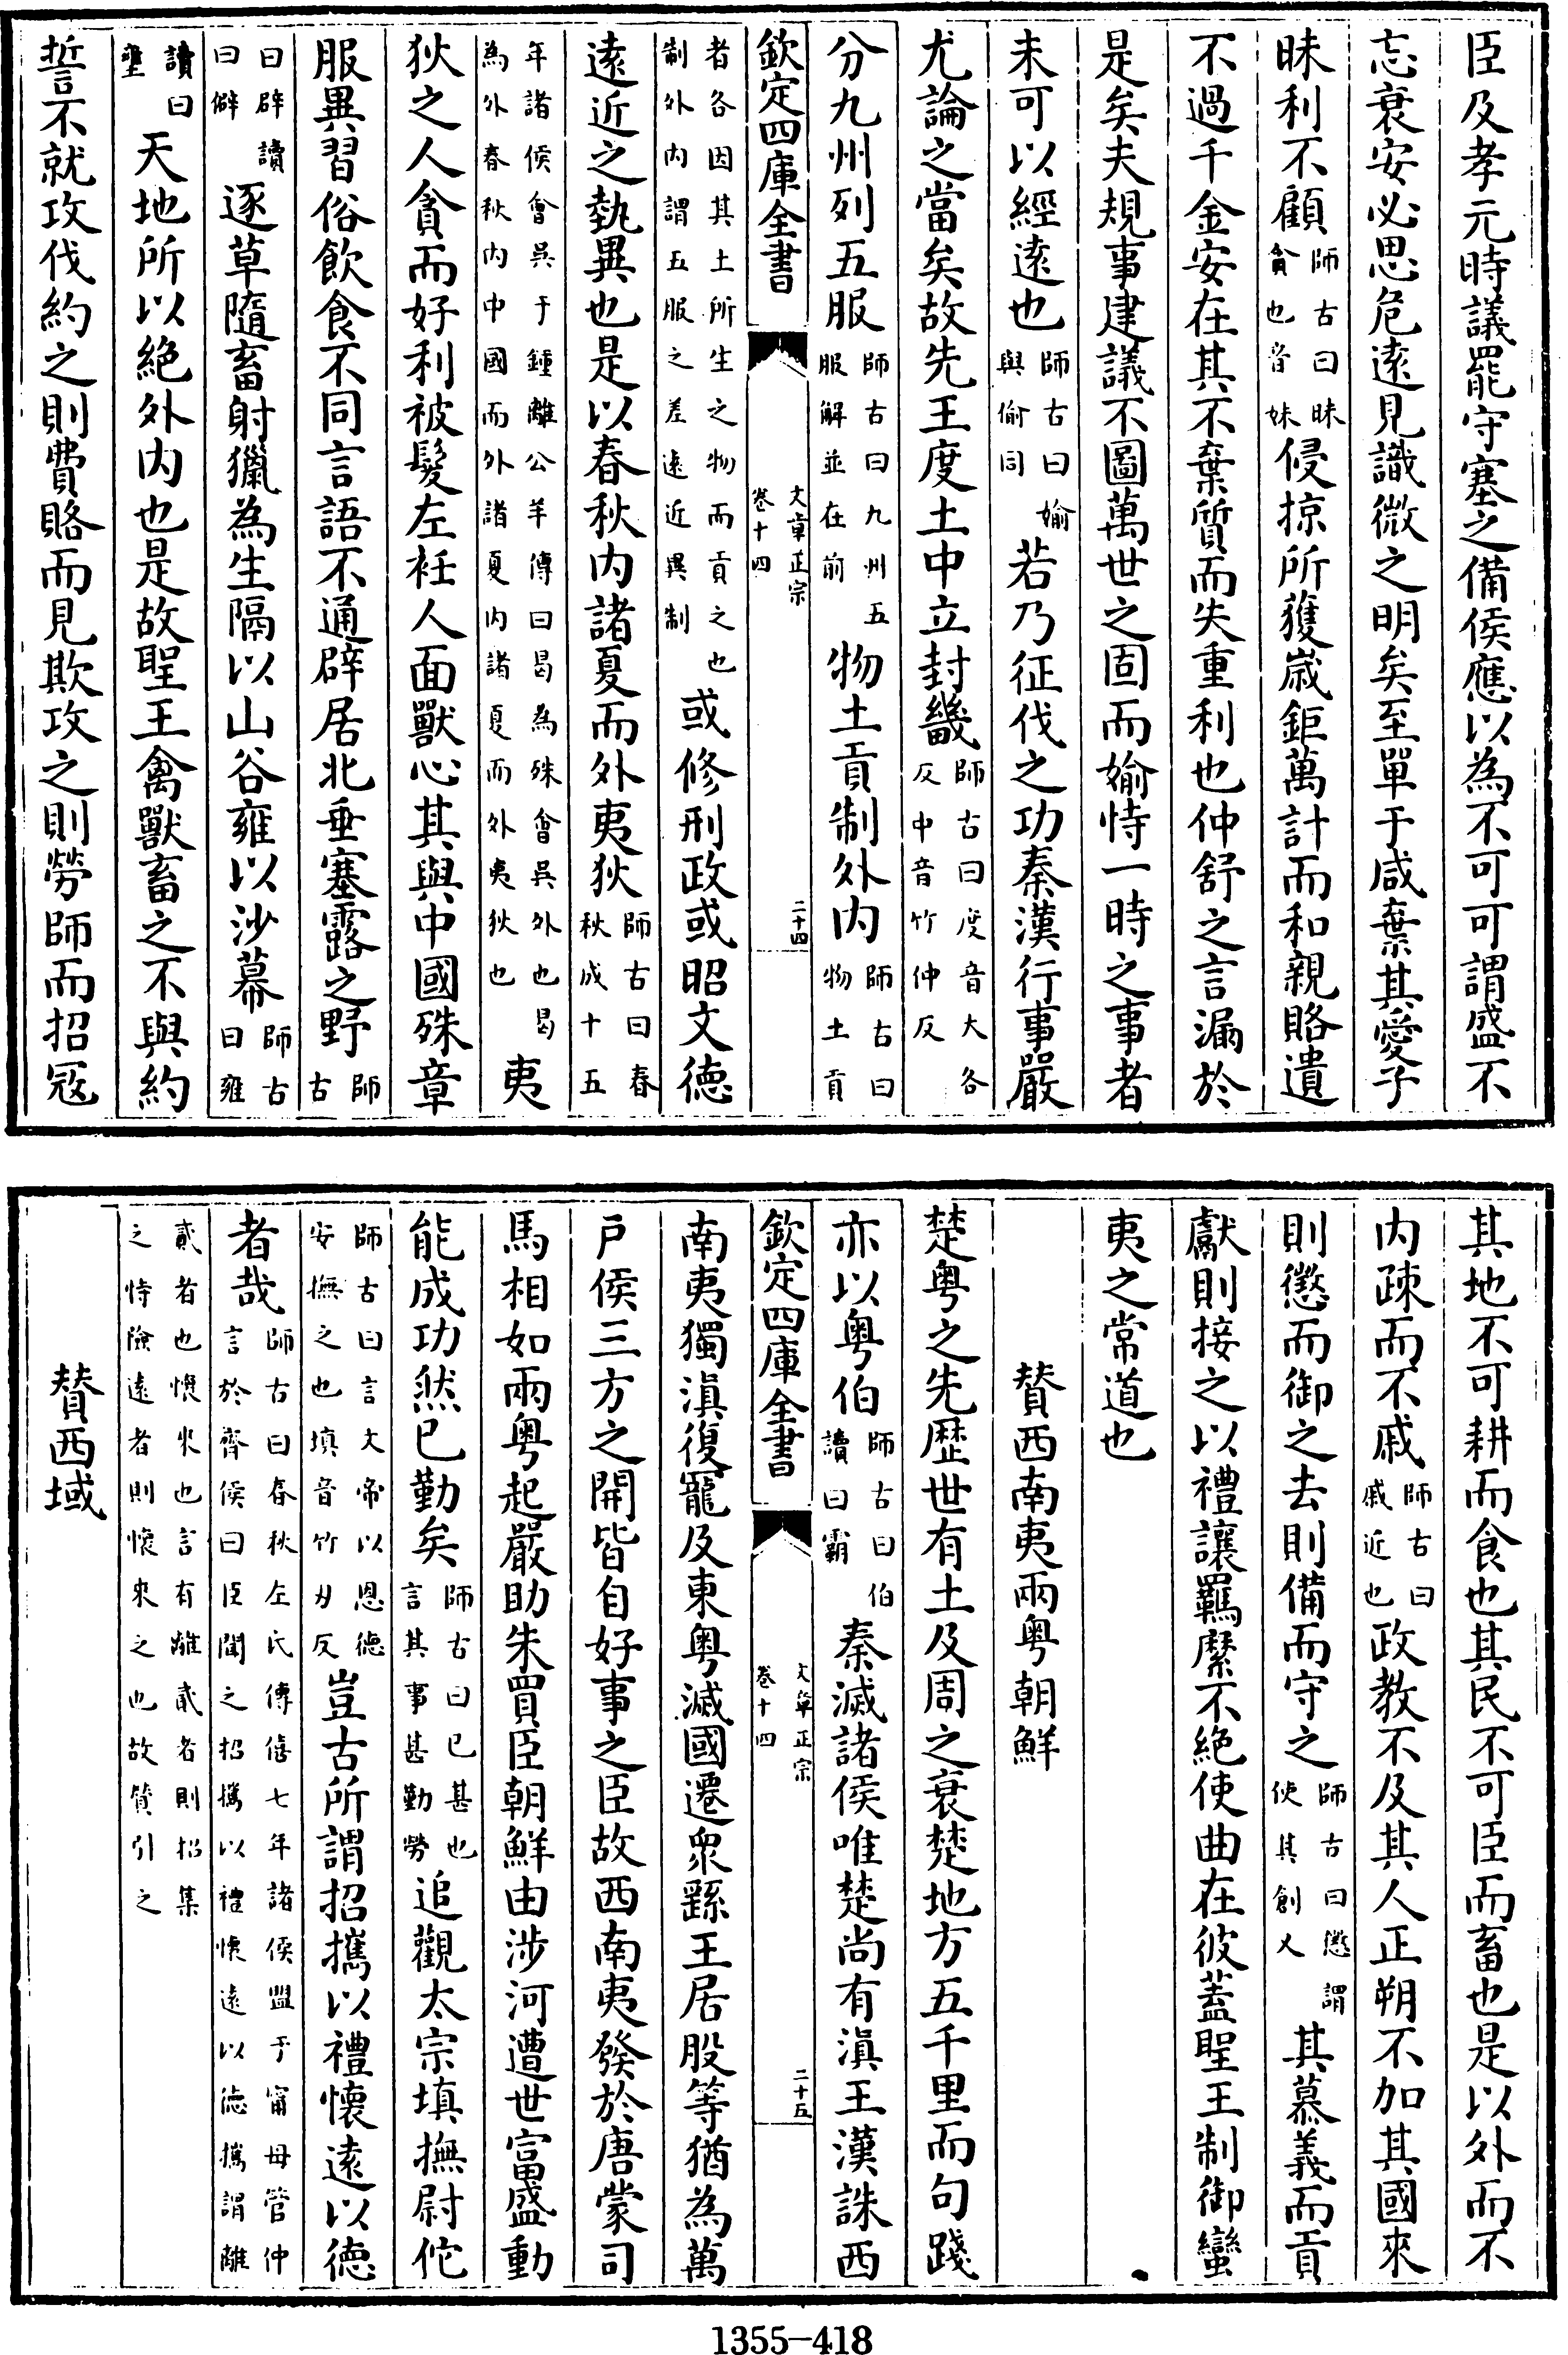 臣及孝元時議罷守塞之備侯應以為不可可謂盛不
忘衰安必思危遠見識微之明矣至單于咸棄其愛子
昧利不顧師古曰昧貪也音妹侵掠所獲歲鉅萬計而和親賂遺
不過千金安在其不棄質而失重利也仲舒之言漏於
是矣夫規事建議不圖萬世之固而媮恃一時之事者
未可以經遠也師古曰媮與偷同若乃征伐之功秦漢行事嚴
尤論之當矣故先王度土中立封畿師古曰度音大各反中音竹仲反
分九州列五服師古曰九州五服解並在前物土貢制外内師古曰物土貢
欽定四庫全書 文章正宗 卷十四 二十四
者各因其土所生之物而貢之也制外内謂五服之差遠近異制或修刑政或昭文徳
遠近之埶異也是以春秋内諸夏而外夷狄師古曰春秋成十五
年諸侯會吳于鍾離公羊傳曰曷為殊會吳外也曷為外春秋内中國而外諸夏内諸夏而外夷狄也夷
狄之人貪而好利被髮左衽人面獸心其與中國殊章
服異習俗飲食不同言語不通辟居北垂塞露之野師古
曰辟讀曰僻逐草隨畜射獵為生隔以山谷雍以沙幕師古曰雍
讀曰壅天地所以絶外内也是故聖王禽獸畜之不與約
誓不就攻伐約之則費賂而見欺攻之則勞師而招寇
其地不可耕而食也其民不可臣而畜也是以外而不
内疎而不戚師古曰戚近也政教不及其人正朔不加其國來
則懲而御之去則備而守之師古曰懲謂使其創乂其慕義而貢
獻則接之以禮讓羈縻不絶使曲在彼蓋聖王制御蠻
夷之常道也
贊西南夷兩粤朝鮮
楚粤之先歴世有土及周之衰楚地方五千里而句踐
亦以粤伯師古曰伯讀曰霸秦滅諸侯唯楚尚有滇王漢誅西
欽定四庫全書 文章正宗 卷十四 二十五
南夷獨滇復寵及東粤滅國遷衆繇王居股等猶為萬
戸侯三方之開皆自好事之臣故西南夷發於唐蒙司
馬相如兩粤起嚴助朱買臣朝鮮由涉河遭世富盛動
能成功然已勤矣師古曰已甚也言其事甚勤勞追觀太宗填撫尉佗
師古曰言文帝以恩徳安撫之也填音竹刃反豈古所謂招攜以禮懷遠以徳
者哉師古曰春秋左氏傳僖七年諸侯盟于甯母管仲言於齊侯曰臣聞之招攜以禮懷遠以徳攜謂離
貳者也懷來也言有離貳者則招集之恃險遠者則懷來之也故贊引之
贊西域
1355-418